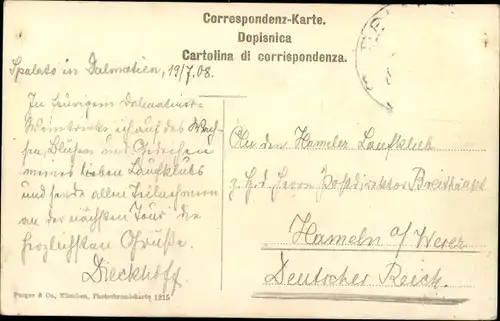 Correspondenz-Karte.
Dopisnica
Cartolina di corrispondenza.
Spalato in Dalmatien, 19/7.08.
In feurigem Dalmatiner-
Wein trinke ich auf das Wach-
sen, Blühen und Gedeihen
meines lieben Laufklubs
und sende allen Teilnehmern
an der nächsten Tour die
herzlichsten Grüße.
Dieckhoff.
An den Hamelner Laufklub
z. Hd. Herrn Postdirektor
Hameln a/Weser
Deutsches Reich.
Purger & Co., München, Photochromiekarte 1215